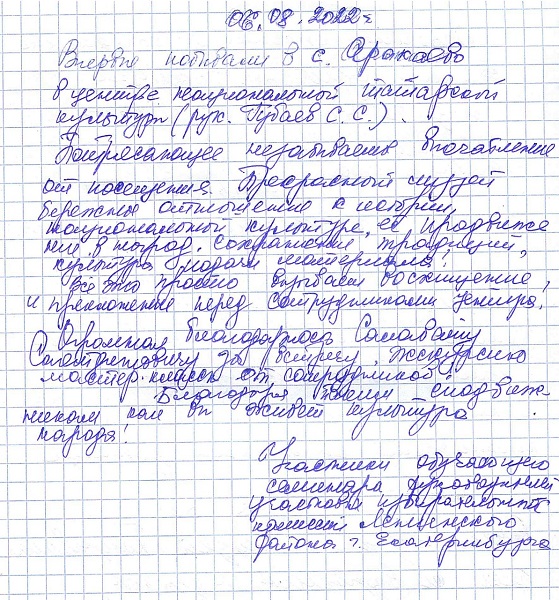 06.08.2022 г.
Впервые побывали в с. Аракаево
в центре национальной татарской
культуры (рук. Губаев С. С.).
Потрясающее незабываемое впечатление
от посещения. Прекрасный музей
бережное отношение к истории,
национальной культуре, ее продвиже
ние в народ, сохранение традиций,
культуры, подачи материала!
Все это просто вызывает восхищение,
и преклонение перед сотрудниками центра!
Огромная благодарность
за встречу, экскурсию
мастер-класс от сотрудников!
Благодаря таким сподвиж
никам как вы живет культура
народа!
Участники обучающего
семинара руководителей
участковых избирательных
комиссий Ленинского
района г. Екатеринбурга